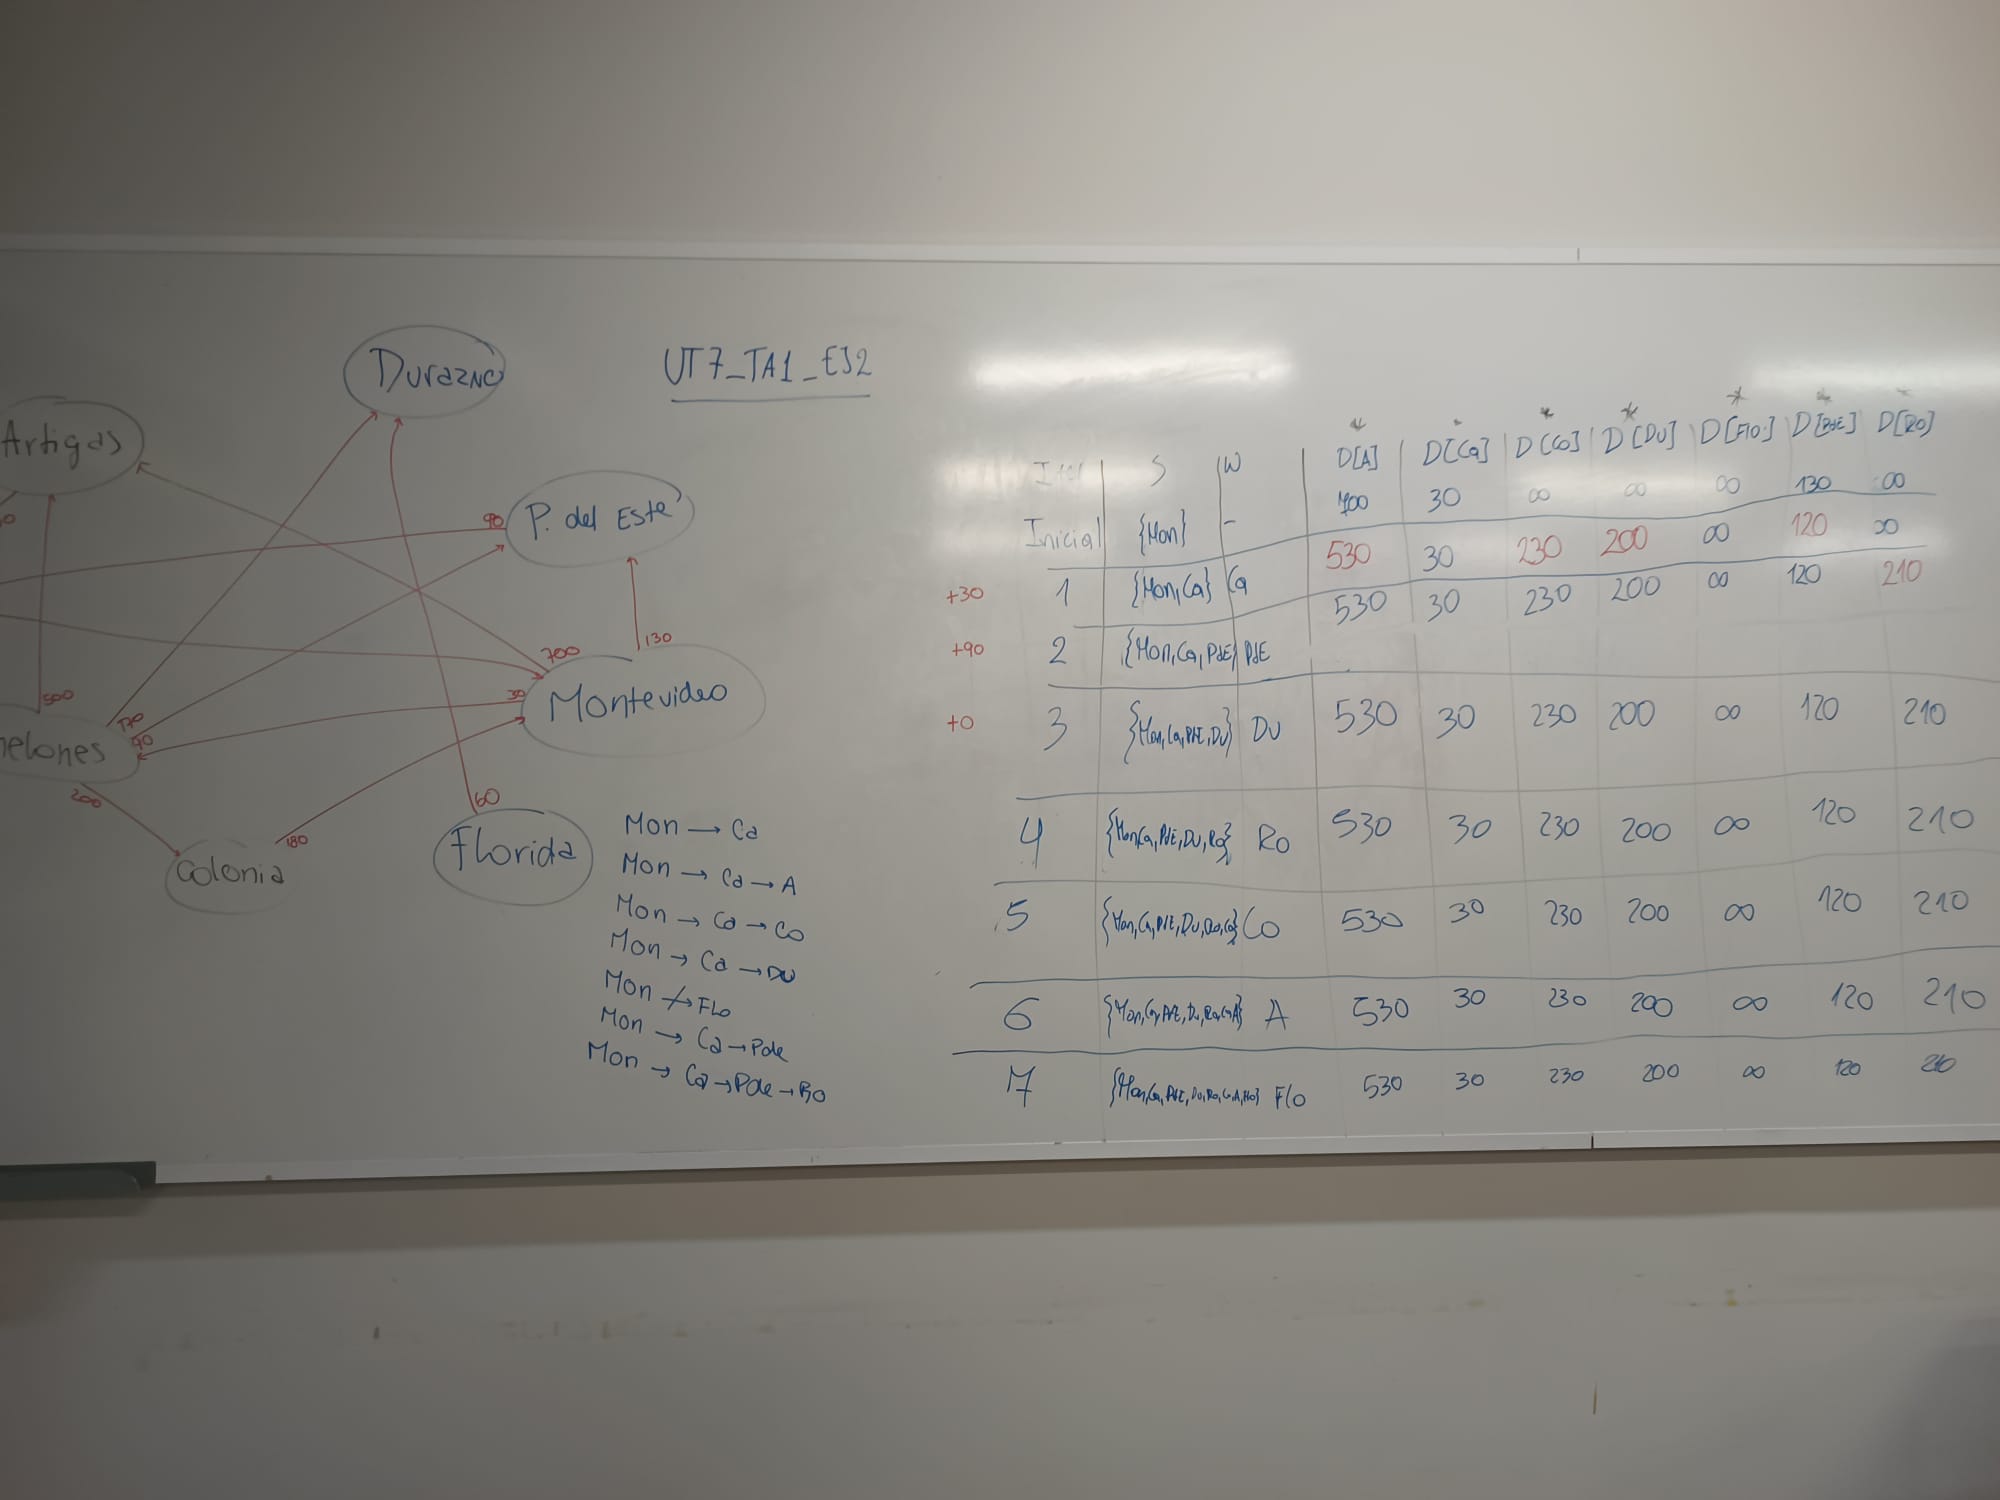 UT7_TA1_EJ2
Durazno
Artigas
P. del Este
90
0
700
130
30
Montevideo
500
170
90
nelones
200
60
180
Colonia
Florida
Mon → Ca
Mon → Ca → A
Mon → Ca → Co
Mon → Ca → DU
Mon ↛ Flo
Mon → Ca → Pde
Mon → Ca → Pde → RO
S W D[A] D[Ca] D[Co] D[DU] D[Flo] D[PdE] D[RO]
Inicial {Mon} - 700 30 ∞ ∞ ∞ 130 ∞
+30 1 {Mon, Ca} Ca 530 30 230 200 ∞ 120 ∞
+90 2 {Mon, Ca, PdE} PdE 530 30 230 200 ∞ 120 210
+0 3 {Mon, Ca, PdE, DU} DU 530 30 230 200 ∞ 120 210
4 {Mon, Ca, PdE, DU, Ro} Ro 530 30 230 200 ∞ 120 210
5 {Mon, Ca, PdE, DU, Ro, Co} Co 530 30 230 200 ∞ 120 210
6 {Mon, Ca, PdE, Du, Ro, Co, A} A 530 30 230 200 ∞ 120 210
7 {Mon, Ca, PdE, DU, Ro, Co, A, Flo} Flo 530 30 230 200 ∞ 120 210